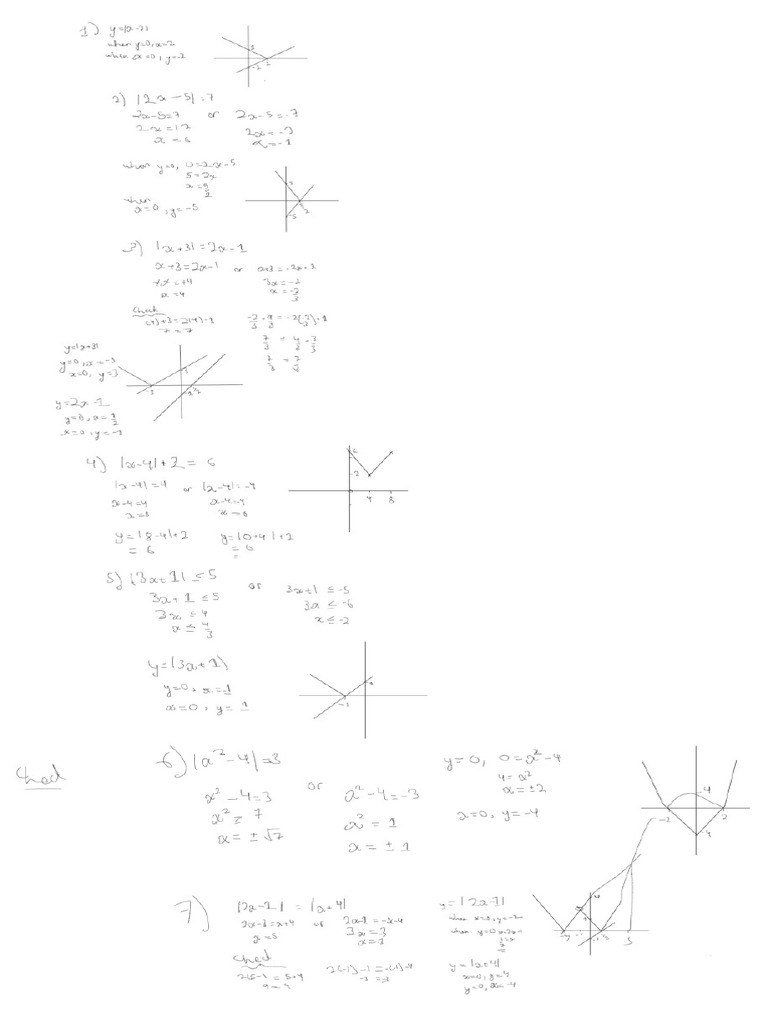 1) y=|x-2|
when y=0, x=2
when x=0, y=-2
2
-2
2) |2x-5|=7
2x-5=7 or 2x-5=-7
2x=12 2x=-2
x=6 x=-1
when y=0, 0=2x-5
5=2x
x=5/2
when
x=0, y=-5
5
-5
3) |x+3|=2x-1
x+3=2x-1 or x+3=-2x+1
x=4 3x=-2
x=-2/3
Check
(4)+3=2(4)-1
7=7
7/3 = 4/3+3/3
7/3 = 7/3
y=|x+3|
y=0, x=-3
x=0, y=3
-3
3
y=2x-1
x=0, y=-1
4) |x-4|+2=6
|x-4|=4 or |x-4|=-4
x-4=4 x-4=-4
x=8 x=0
y=|8-4|+2 y=|0+4|+2
=6 =6
6
2
0 4 8
5) |3x+1| ≤5
3x+1 ≤5 or 3x+1 ≤ -5
3x ≤ 4 3x ≤ -6
x ≤ 4/3 x ≤ -2
y=|3x+1|
y=0, x=-1
x=0, y=1
Check
6) |x²-4|=3
x²-4=3 or x²-4=-3
x²=7 x²=1
x=±√7 x=±1
y=0, 0=x²-4
4=x²
x=±2
x=0, y=-4
4
-2 2
-4
7) |2x-1| = |x+4|
2x-1=x+4 or 2x-1=-x-4
x=5
Check
2(5)-1=5+4
9=9
2(-1)-1=-(-1)-4
-3=-3
y=|2x-1|
y=|x+4|
x=0, y=4
y=0, x=-4
5